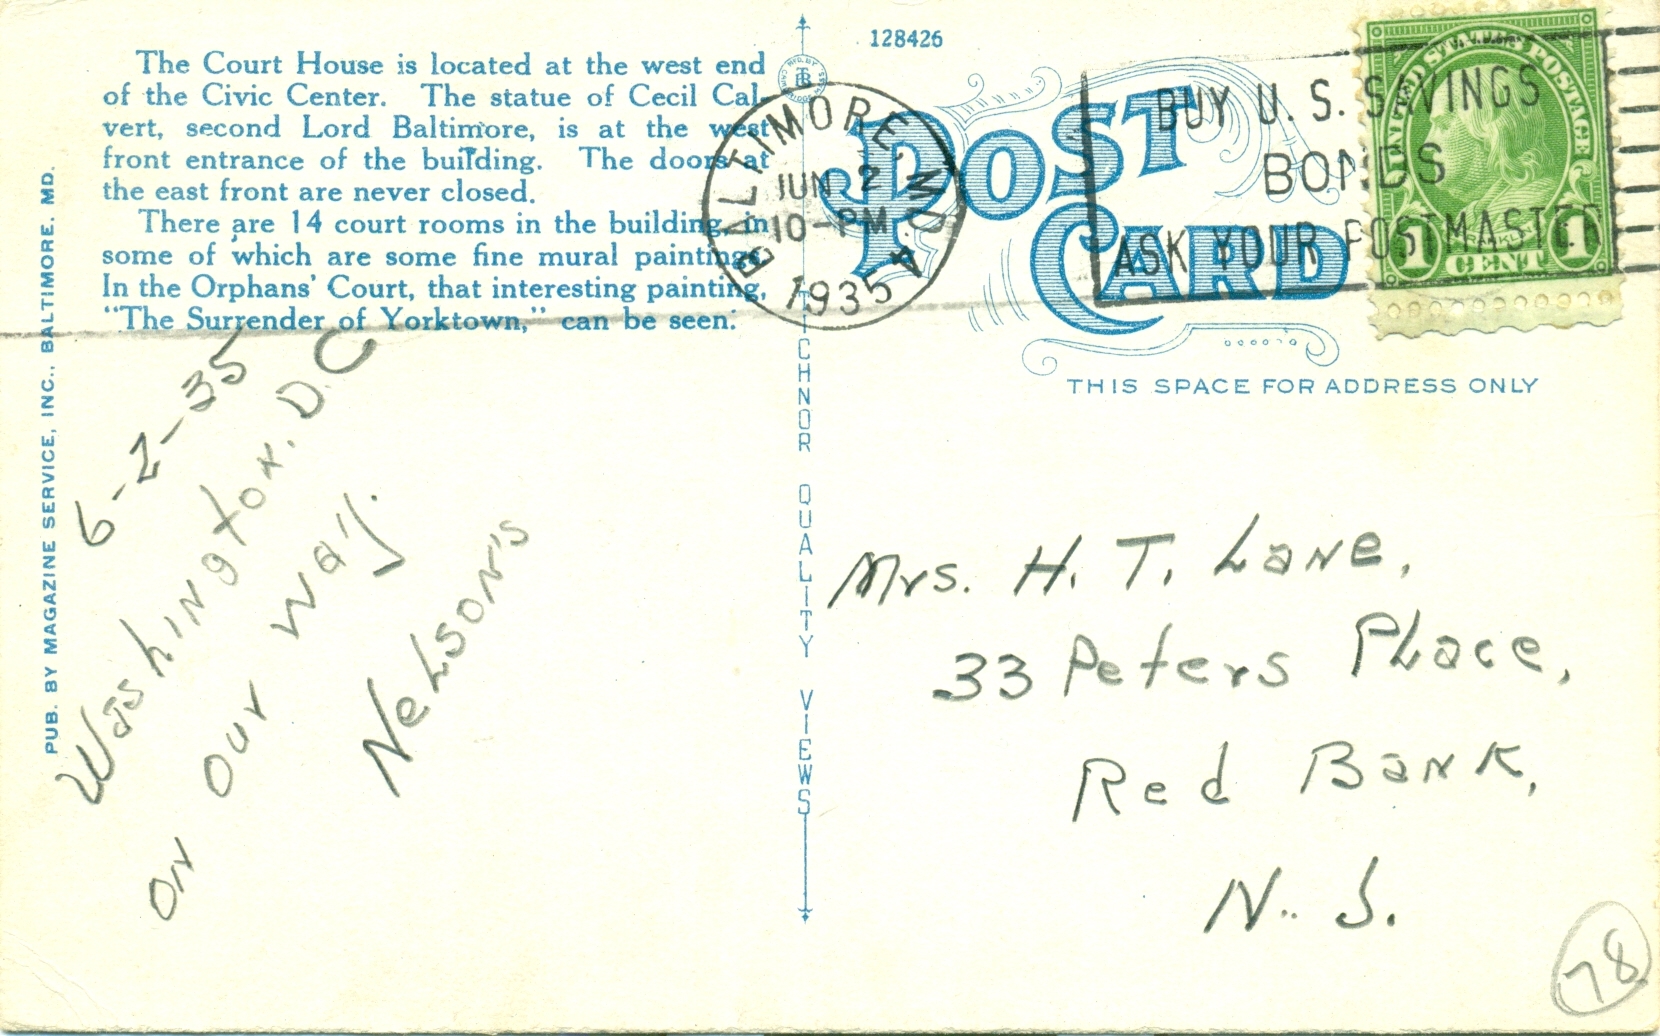 The Court House is located at the west end
of the Civic Center. The statue of Cecil Cal-
vert, second Lord Baltimore, is at the west
front entrance of the building. The doors at
the east front are never closed.
There are 14 court rooms in the building, in
some of which are some fine mural paintings.
In the Orphans' Court, that interesting painting,
"The Surrender of Yorktown," can be seen.
PUB. BY MAGAZINE SERVICE, INC., BALTIMORE, MD.
6-2-35
Washington. D.C
on our way.
Nelson's
TCHNOR QUALITY VIEWS
128426
POST
CARD
THIS SPACE FOR ADDRESS ONLY
BALTIMORE, MD.
JUN 2
10-PM
1935
A
BUY U. S. SAVINGS
BONDS
ASK YOUR POSTMASTER
UNITED STATES POSTAGE
FRANKLIN
1 CENT 1
Mrs. H. T. Lane,
33 Peters Place,
Red Bank,
N. J.
78